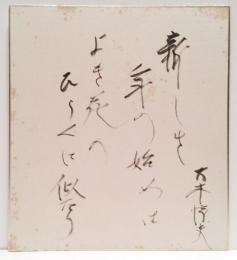 新しき
年の始めは
よき花の
ひらくに似たり
大木惇夫